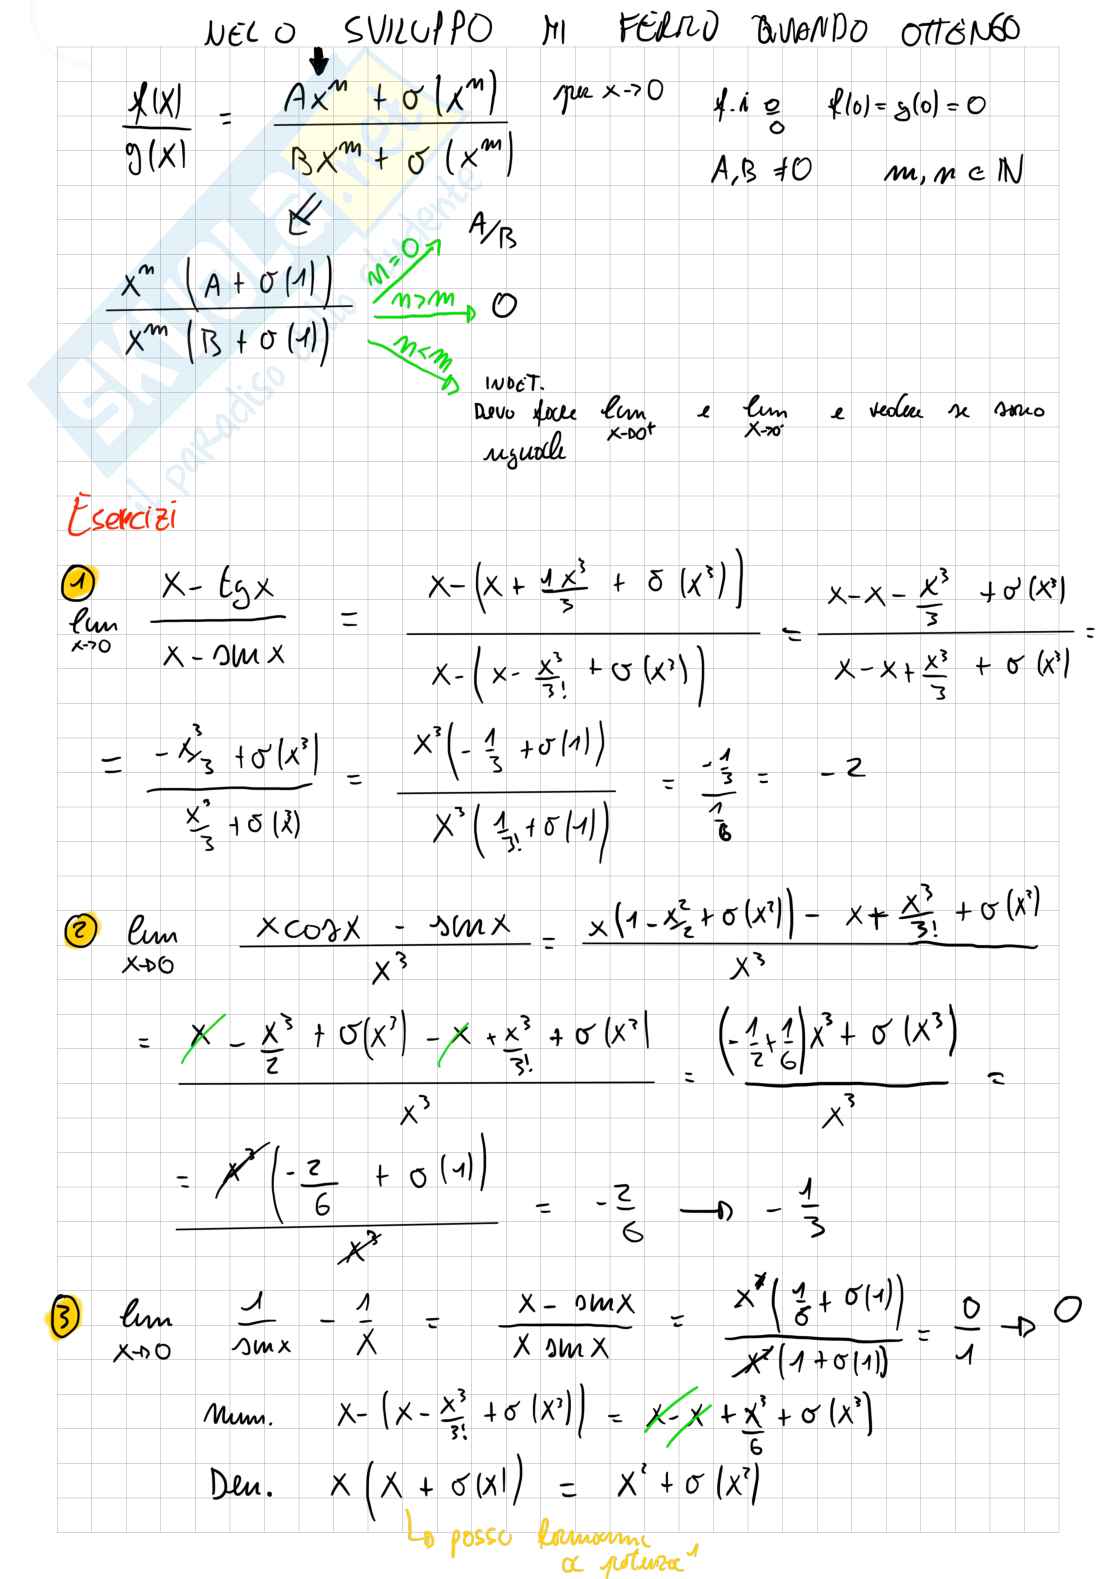 NELO SVILUPPO MI FERMO QUANDO OTTENGO
f(x)/g(x) = (Ax^n + o(x^n))/(Bx^m + o(x^m)) per x→0 f.i 0/0 f(0)=g(0)=0
A,B ≠0 m,n ∈ IN
(x^n (A + o(1)))/(x^m (B + o(1)))
n=0 A/B
n>m 0
n<m INDET.
Devo fare lim x→0+ e lim x→0- e vedere se sono
uguale
Esercizi
1 lim x→0 (x - tgx)/(x - sinx) = (x-(x + 1x³/3 + o(x³)))/(x-(x - x³/3! + o(x³))) = (x-x-x³/3 + o(x³))/(x-x+x³/3 + o(x³)) =
= (-x³/3 + o(x³))/(x³/3 + o(x³)) = (x³(-1/3 + o(1)))/(x³(1/3! + o(1))) = (-1/3)/(1/6) = -2
2 lim x→0 (xcosx - sinx)/x³ = (x(1-x²/2 + o(x²)) - x + x³/3! + o(x³))/x³
= (x - x³/2 + o(x³) - x + x³/3! + o(x³))/x³ = ((-1/2+1/6)x³ + o(x³))/x³ =
= (x³(-2/6 + o(1)))/x³ = -2/6 → -1/3
3 lim x→0 1/sinx - 1/x = (x - sinx)/(x sinx) = (x³(1/6 + o(1)))/(x²(1 + o(1))) = 0/1 → 0
Num. x-(x-x³/3! + o(x³)) = x-x + x³/6 + o(x³)
Den. x(x + o(x)) = x² + o(x²)
Lo posso fermarmi
a potenza 1
SKUOLA.net
il paradiso dello studente